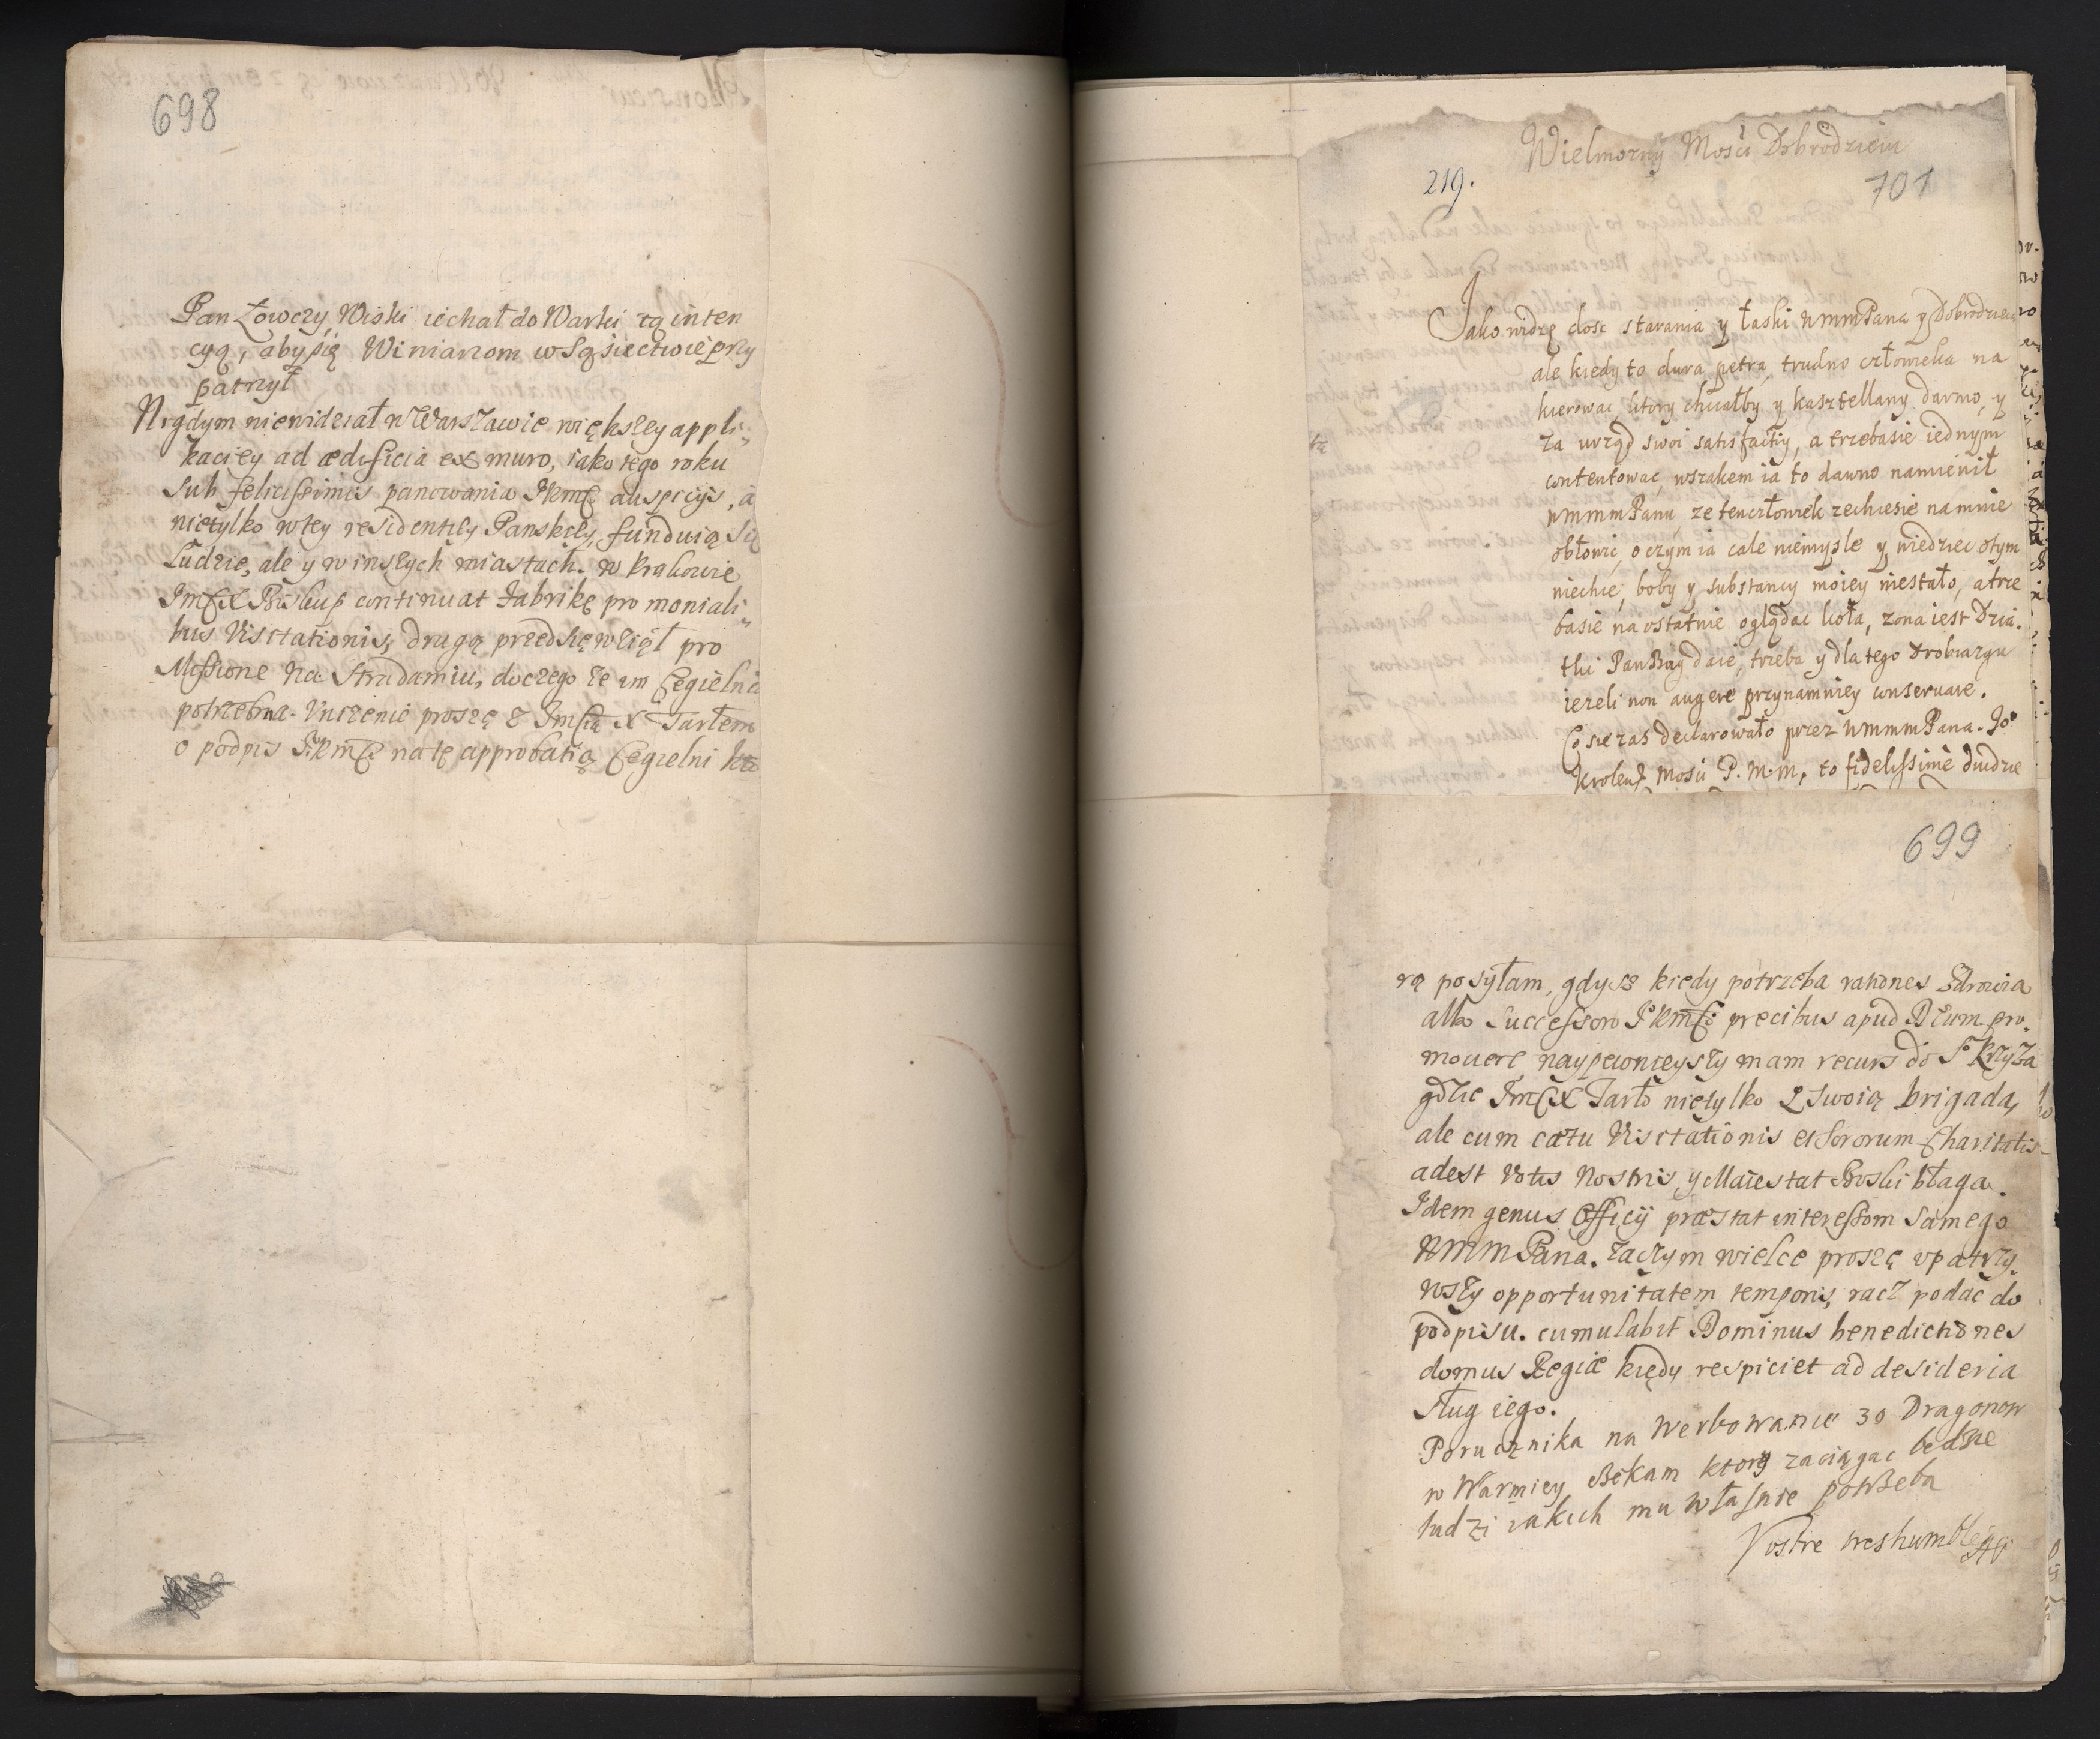 698
Pan Łowczy Wiski iechał do Warki tą inten
cyą, aby się Winianom w Sąsiectwie przy
patrzył
Nigdym niewidział w Warszawie większey appli„
kaciey ad ædificia ex muro, iako tego roku
sub felicissimis panowania JKmći auspicijs, a
nietylko w tey residentiey Panskiey, funduią się
Ludzie, ale y w inszych miastach. w Krakowie
JmćX Biskup continuat fabrikę pro moniali„
bus Visitationis, drugą przedsięwziął pro
Missione na Stradamiu, do czego ze im Cegielnia
potrzebna. Vniżenie proszę z Jmćią X Tarłem
o podpis JKmći na tę approbatią Cegielni kto
219.
Wielmozny Mośći Dobrodzieiu
701
Jako widzę dosc starania y łaski WmmPana y Dobrodzieia
ale kiedy to dura petra, trudno człowieka na
kierować, ktory chciałby y kasztellany darmo, y
za urząd swoi satisfactiy, a trzebasie iednym
contentować, wszakem ia to dawno namienił
WmmmPanu ze ten człowiek zechcesie na mnie
obłowić, o czym ia cale niemysle y wiedziec otym
niechcę, boby y substancy moiey niestało, a trze
basie na ostatnie oglądac koła, zona iest Dzia.
tki Pan Bog daie, trzeba y dla tego drobiazgu
iezeli non augere przynamniey conservare.
Co sie zas declarowało przez WmmmPana. Jo
Krolews Mosci P. M. m, to fidelissimè dndzie
699
rą posyłam, gdysz kiedy potrzeba rationes Zdrowia
albo Successorow JKmći precibus apud Deum pro„
movere naypewnieyszy mam recurs do S Krzyża
gdzie JmćX Tarło nietylko z swoią brigadą,
ale cum cætu Visitationis et Sororum Charitatis
adest votis Nostris, y Maiestat Boski błaga.
Idem genus officij præstat interessom samego
WMMPana. Zaczym wielce proszę upatrzy„
wszy opportunitatem temporis, racz podać do
podpisu. cumulabit Dominus benedictiones
domus Regiæ kiedy respiciet ad desideria
sług iego.
Porucznika na werbowanie 30 Dragonow
w Warmiey czekam ktory zaciągac bedzie
ludzi iakich mu własnie potrzeba
Vostre treshumble